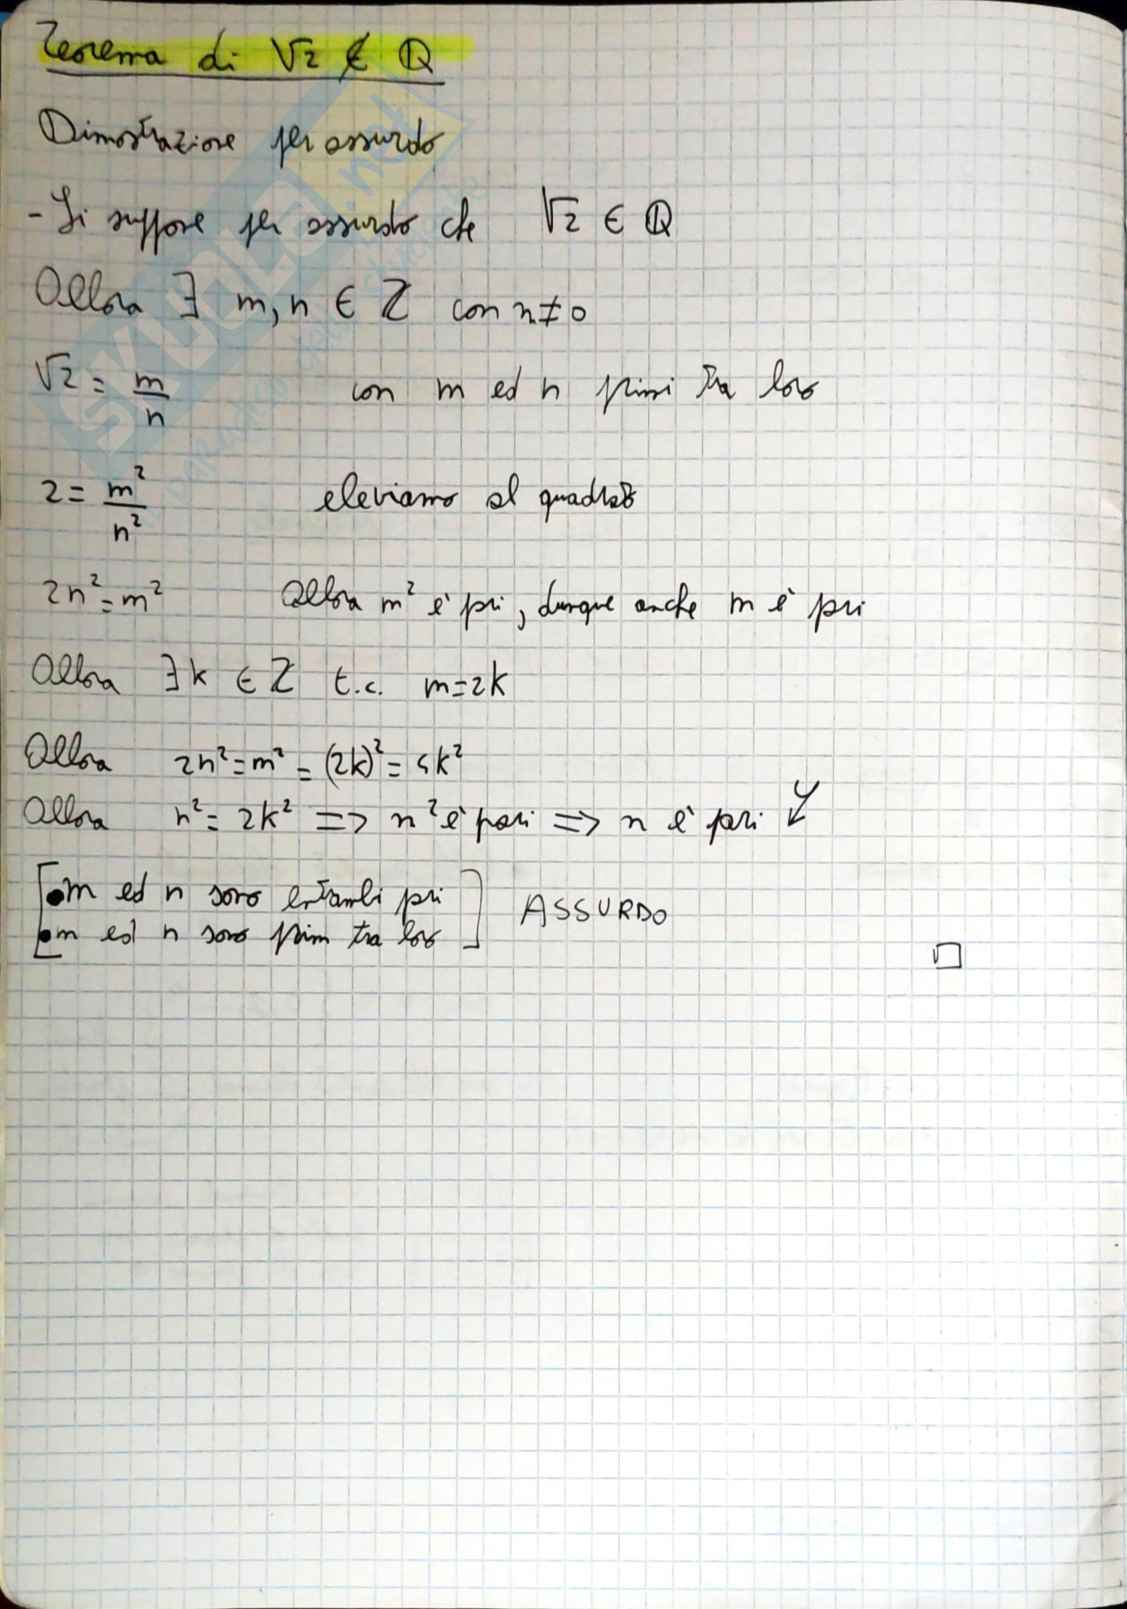 Teorema di √2 ∉ ℚ
Dimostrazione per assurdo
- Si suppone per assurdo che √2 ∈ ℚ
Allora ∃ m, n ∈ ℤ con n ≠ 0
√2 = m/n con m ed n primi tra loro
2 = m²/n² eleviamo al quadrato
2n² = m² Allora m² è pari, dunque anche m è pari
Allora ∃ k ∈ ℤ t.c. m = 2k
Allora 2n² = m² = (2k)² = 4k²
Allora n² = 2k² => n² è pari => n è pari ↯
[• m ed n sono entrambi pari
• m ed n sono primi tra loro] ASSURDO
□
SKUOLA.net